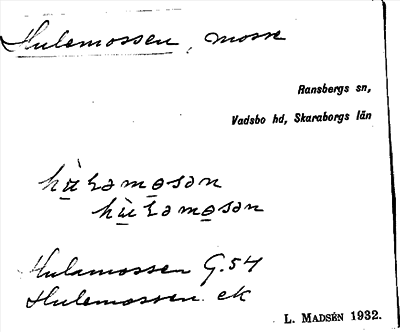 Hulemossen, mosse
Ransbergs sn,
Vadsbo hd, Skaraborgs län
hu̱̇ꞎəmo̱sən
hu̱̇ꞎəmo̱sən
Hulamossen G.54
Hulemossen ek
L. MADSÉN 1932.